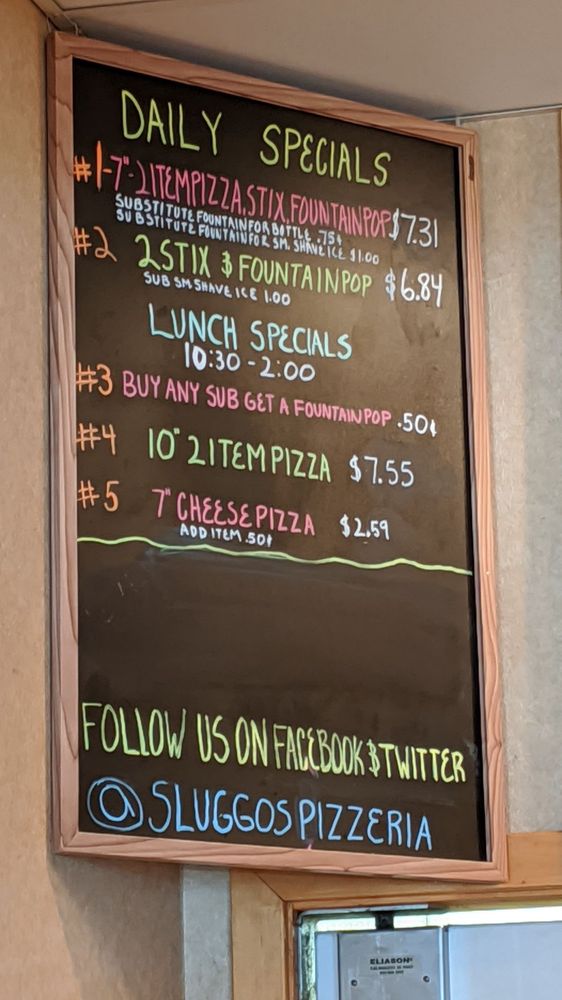 DAILY SPECIALS
#1-7"-2ITEMPIZZA, STIX, FOUNTAINPOP $7.31
SUBSTITUTE FOUNTAIN FOR BOTTLE .75¢
SUBSTITUTE FOUNTAIN FOR SM. SHAVE ICE $1.00
#2 2 STIX & FOUNTAINPOP $6.84
SUB SM SHAVE ICE 1.00
LUNCH SPECIALS
10:30-2:00
#3 BUY ANY SUB GET A FOUNTAINPOP .50¢
#4 10" 2 ITEM PIZZA $7.55
#5 7" CHEESE PIZZA $2.59
ADD ITEM .50¢
FOLLOW US ON FACEBOOK & TWITTER
@SLUGGOSPIZZERIA
ELIASON